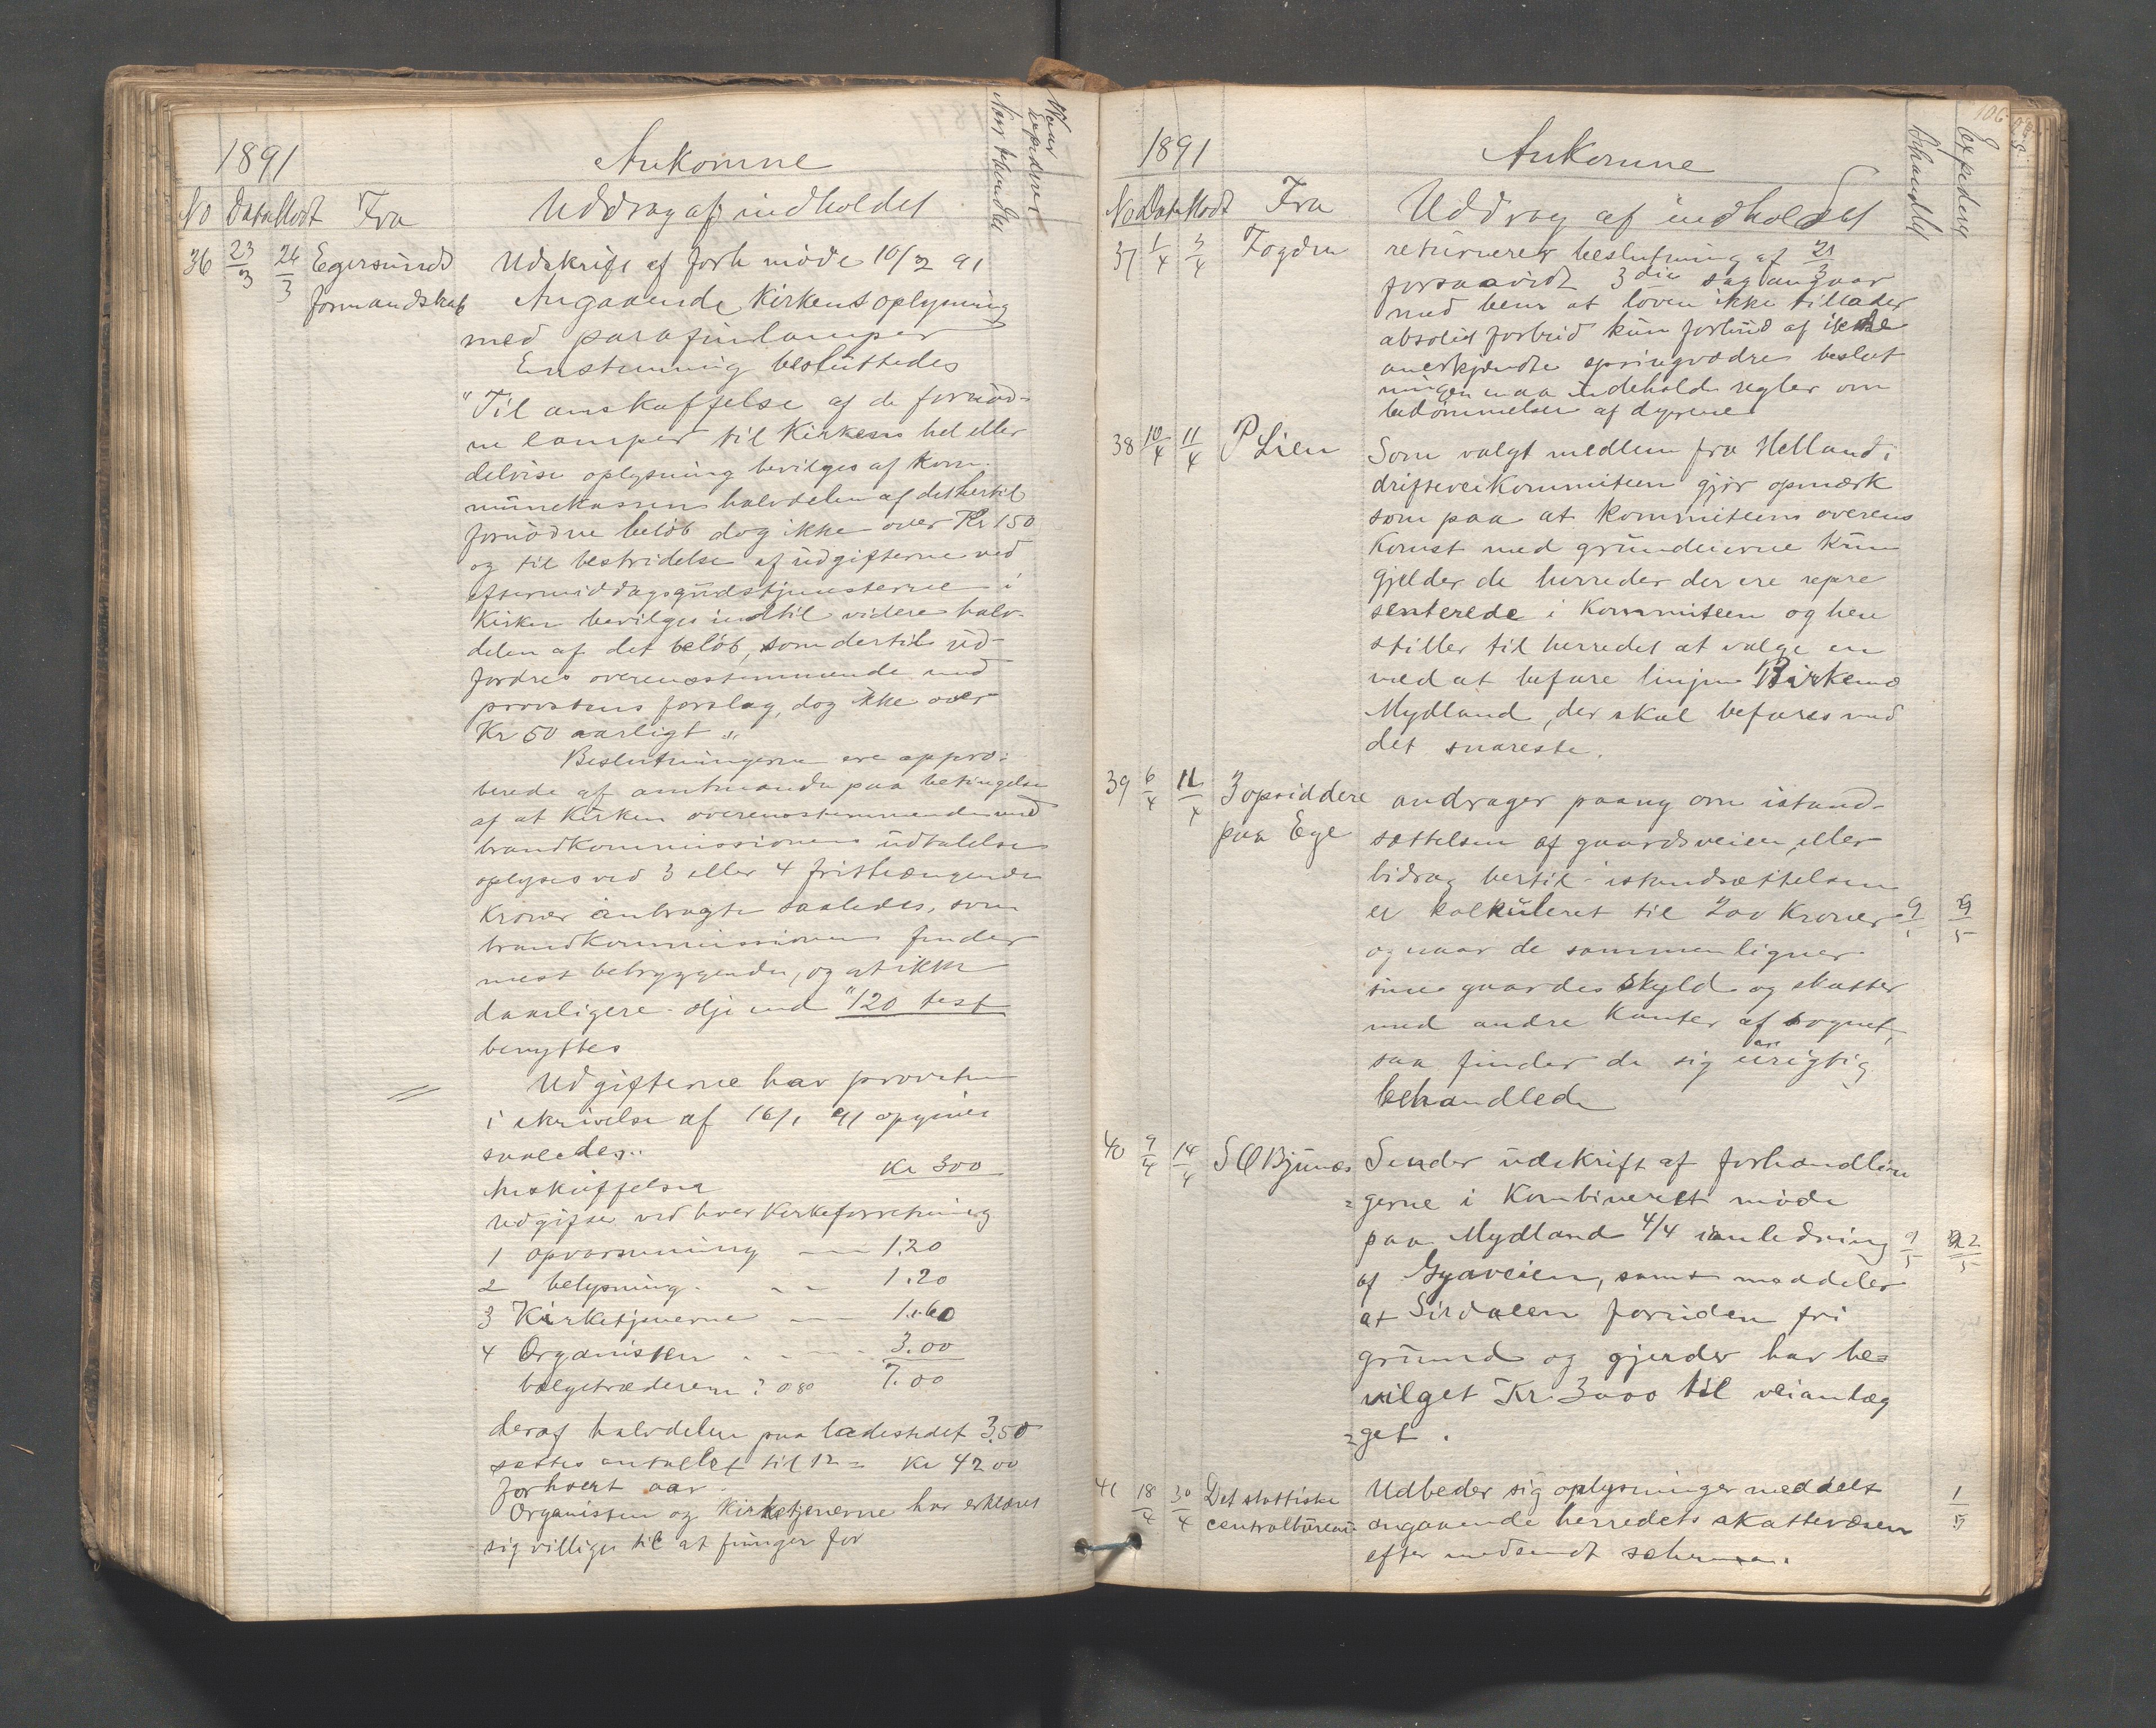 1891 Ankomne Naar behandlet Naar expederet
No Dato Modt Fra Uddrag af indholdet
36 23/3 26/3 Egersunds Udskrift af forh møde 10/3 91
formandskab Angaaende Kirkens oplysning
med parafinlamper
Enstemmig besluttedes
"Til anskaffelse af de fornød-
ne lamper til Kirkens hel eller
delvise oplysning bevilges af Kom-
munekassen halvdelen af det hertil
fornødne beløb dog ikke over Kr 150
og til bestridelse af udgifterne ved
eftermiddagsgudstjenesterne i
Kirken bevilges indtil videre halv-
delen af det beløb, som dertil ud-
fordres overensstemmende med
provstens forslag, dog ikke over
Kr 50 aarligt"
Beslutningerne ere appro-
berede af amtmanden paa betingelse
af at Kirken overensstemmende med
brandkommissionens udtalelse
oplyses ved 3 eller 4 fritthængende
Kroner anbragte saaledes, som
brandkommissionen finder
mest betryggende, og at ikke
daarligere olje end "120 test
benyttes
Udgifterne har provsten
i skrivelse af 16/1 91 opgivet
saaledes..
Anskaffelse Kr 300
Udgifter ved hver Kirkeforretning
1 opvarmning 1.20
2 belysning 1.20
3 Kirketjenerne 1.60
4 Organisten 3.00
bælgetræderen? 0 80 7.00
deraf halvdelen paa ladestedet 3.50
sættes antallet til 12 = Kr 42 00
for hvert aar.
Organisten og Kirketjenerne har erklæret
sig villige til at funger for
106
1891 Ankomne behandlet expederet
No Dato Modt Fra Uddrag af indholdet
37 1/4 3/4 Fogden returnerer beslutning af 21/3
forsaavidt 3die sag angaar
med bem at loven ikke tillader
absolut forbud kun forbud af ikke
anerkjendte springvædre beslut
ningen maa indeholde regler om
bedømmelsen af dyrene
38 10/4 11/4 P Lien Som valgt medlem fra Helland i
driftsveikommiteen gjør opmærk
som paa at kommiteens overens
komst med grundeierne kun
gjelder de herreder der ere repre
senterede i Kommiteen og hen
stiller til herredet at valge en
ved at befare linjen Birkemo
Mydland, der skal befares med
det snareste.
39 6/4 11/4 3 opsiddere andrager paany om istand-
paa Ege sættelsen af gaardsveien, eller
bidrag hertil - istandsættelsen
er kalkuleret til 200 Kroner 9/5
og naar de sammenligner
sine gaardes skyld og skatter
med andre Kanter af sognet,
saa finder de sig urigtig
behandlede
40 9/4 14/4 S O Bjunes Sender udskrift af forhandlin
=gerne i Kombineret møde
paa Mydland 4/4 i anledning 9/5 22/5
af Gyaveien, samt meddeler
at Sirdalen foruden fri
grund og gjerder har be=
vilget Kr. 3000 til veianlæg
=get.
41 18/4 30/4 Det statistiske Udbeder sig oplysninger meddelt
centralbureau angaaende herredets skattevæsen 1/5
efter medsendt schema.